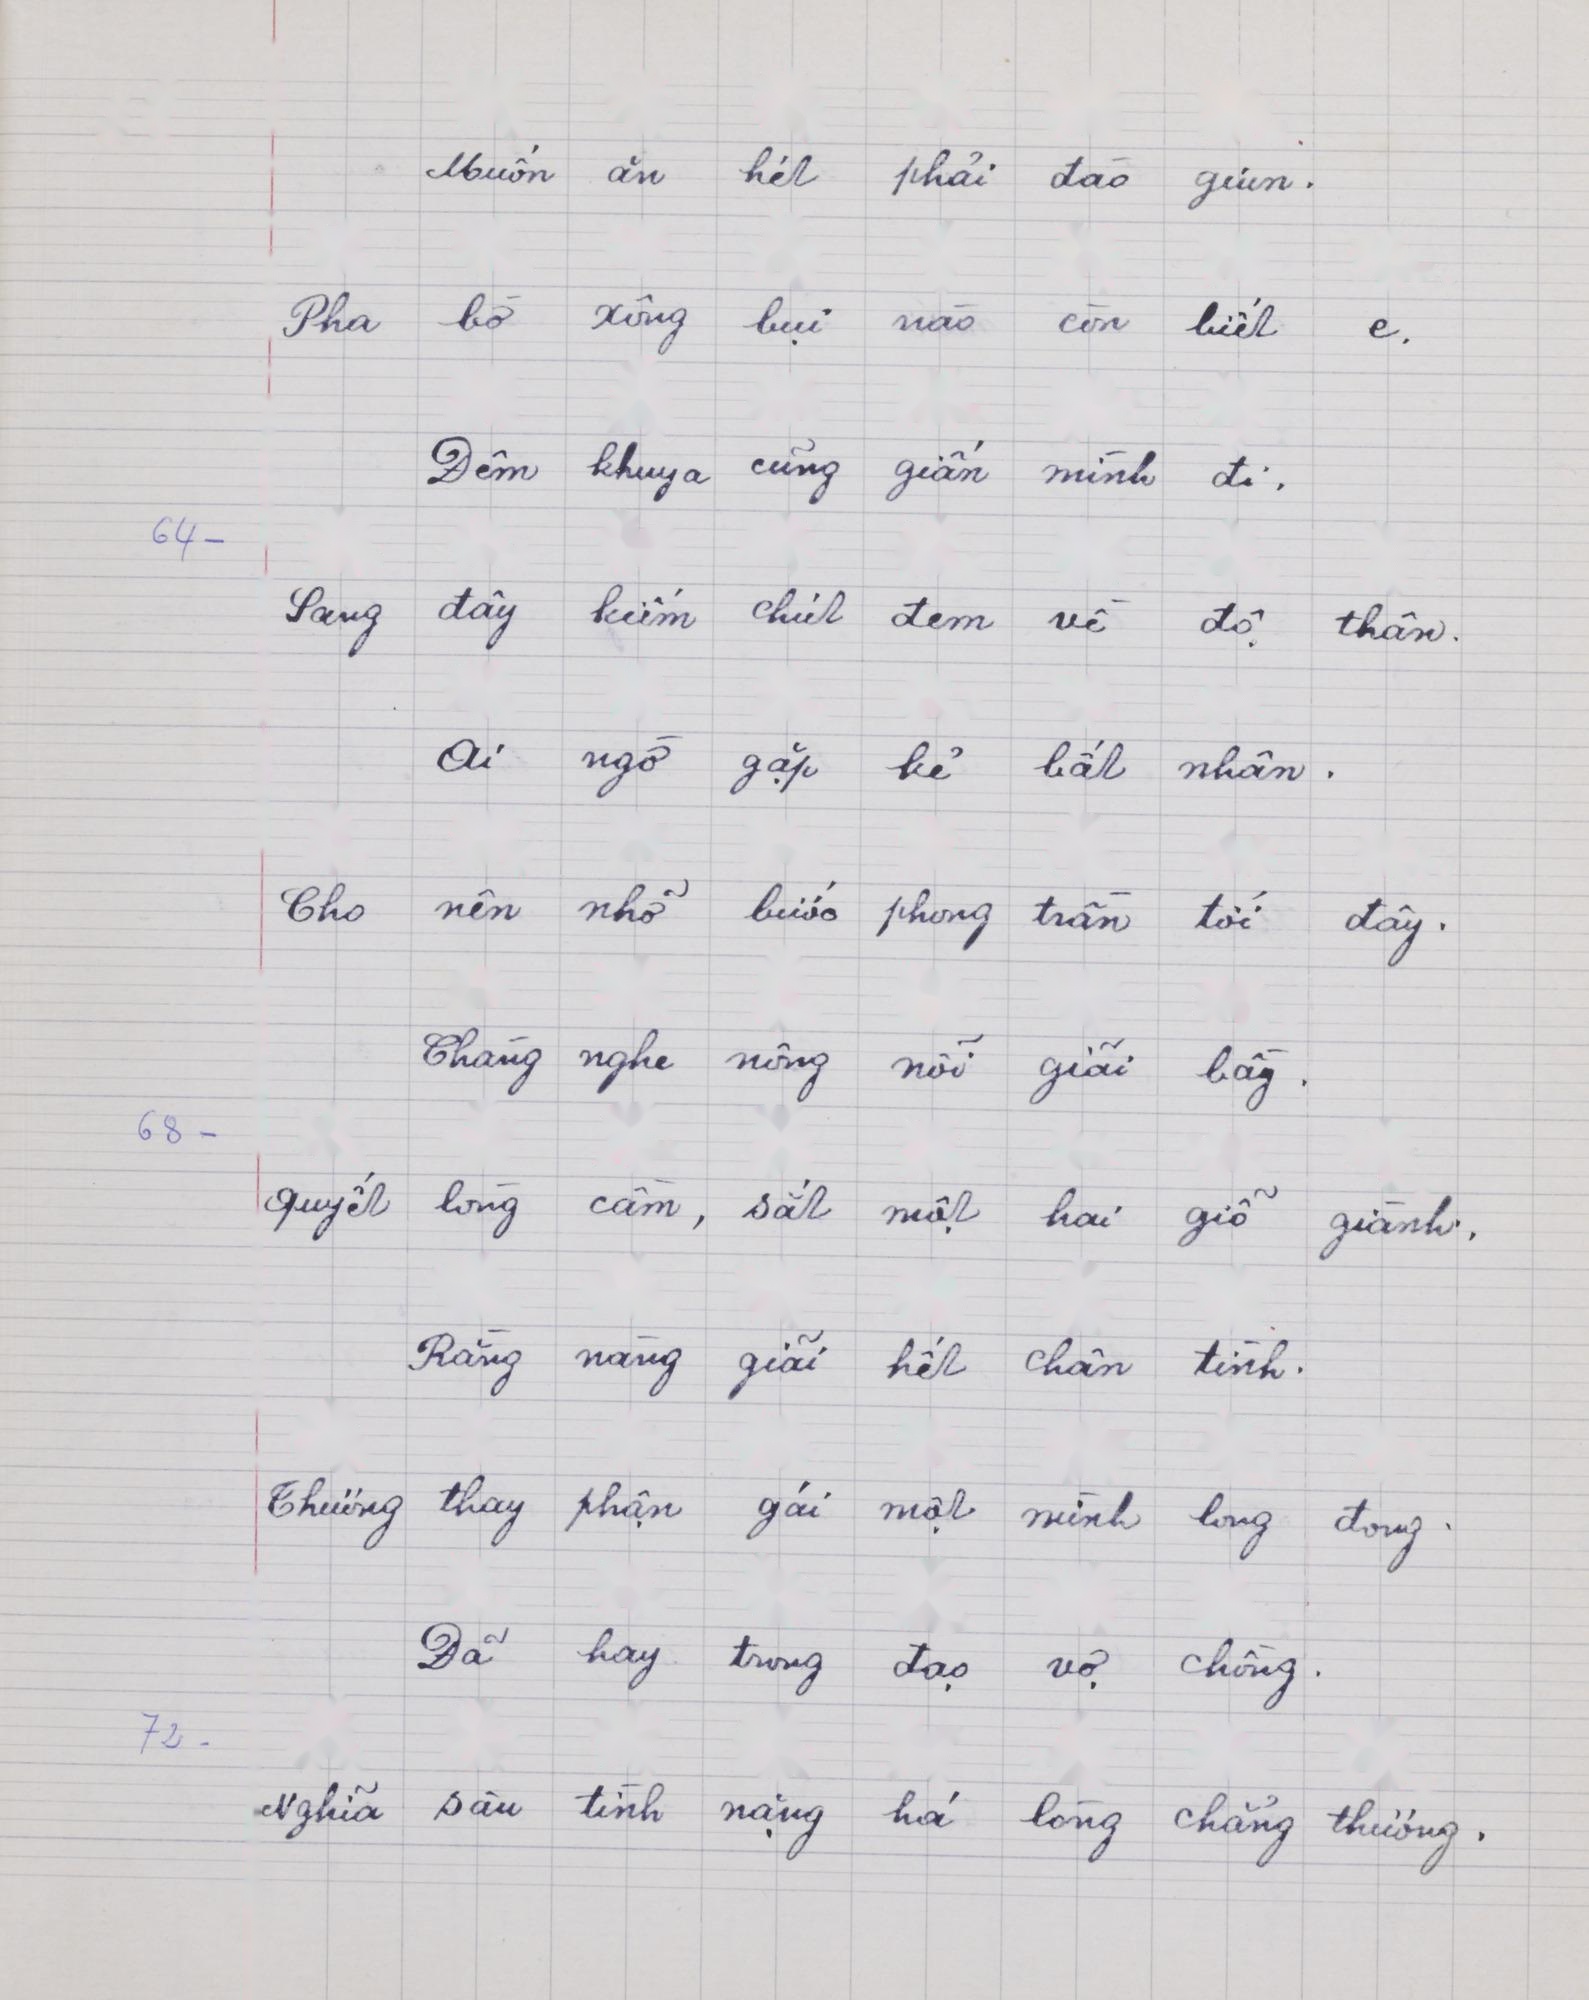 Muốn ăn hét phải đào giun.
Pha bờ xông bụi nào còn biết e.
Đêm khuya cũng giấn mình đi.
64-
Sang đây kiếm chút đem về độ thân.
Ai ngờ gặp kẻ bất nhân.
Cho nên nhỡ bước phong trần tới đây.
Chàng nghe nông nỗi giãi bầy.
68-
Quyết lòng cầm, sắt một hai giỗ giành.
Rằng nàng giãi hết chân tình.
Thương thay phận gái một mình long đong.
Đã hay trong đạo vợ chồng.
72-
Nghĩa sâu tình nặng há lòng chẳng thương.